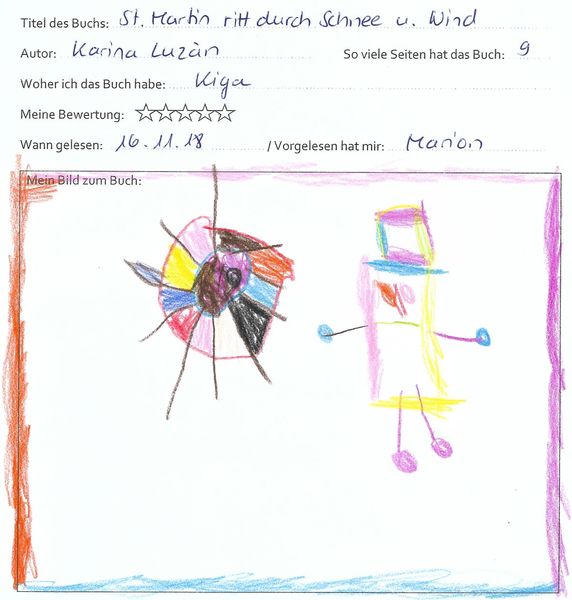 Titel des Buchs: St. Martin ritt durch Schnee u. Wind
Autor: Karina Luzàn So viele Seiten hat das Buch: 9
Woher ich das Buch habe: Kiga
Meine Bewertung: ☆☆☆☆☆
Wann gelesen: 16.11.18 / Vorgelesen hat mir: Marion
Mein Bild zum Buch: